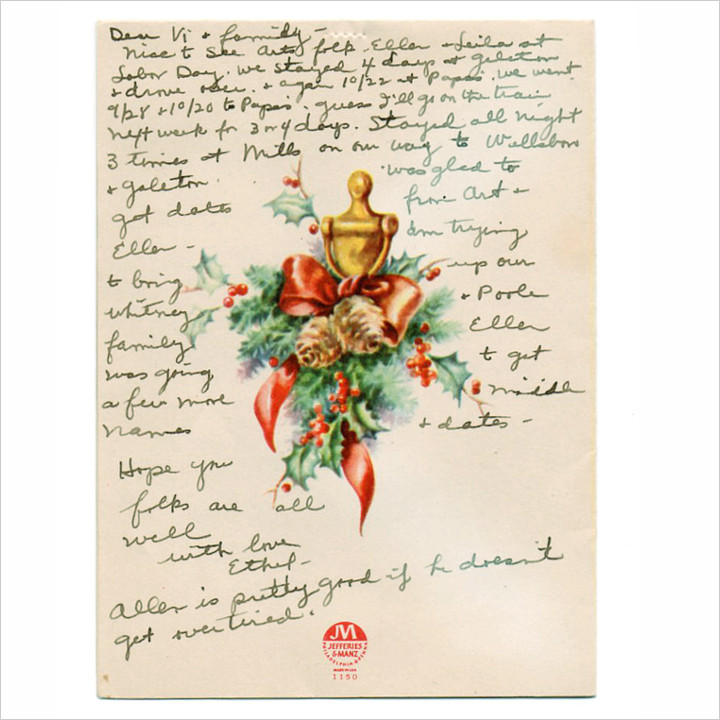 Dear Vi & family -
Nice to see Arts folk - Ellen & Leila at
Labor Day. We stayed 4 days at Galeton
& drove over. & again 10/22 at Papas. We went
9/28 & 10/20 to Papas. guess I'll go on the train
next week for 3 or 4 days. Stayed all night
3 times at Mills on our way to Wellsboro
& Galeton. was glad to
got dates from Art &
Ellen - am trying
to bring up our
Whitney & Poole
family Ellen
was going to get
a few more middle
names & dates -
Hope you
folks are all
well
with love
Ethel -
Allen is pretty good if he doesn't
get overtired.
JM
JEFFERIES
& MANZ
PHILADELPHIA
MADE IN USA
1150